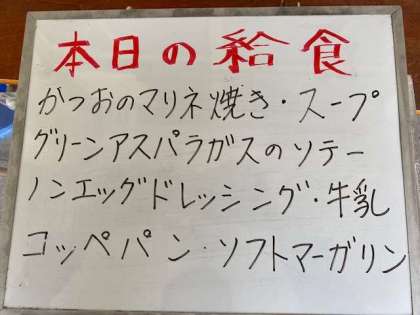 本日の給食
かつおのマリネ焼き・スープ
グリーンアスパラガスのソテー
ノンエッグドレッシング・牛乳
コッペパン・ソフトマーガリン